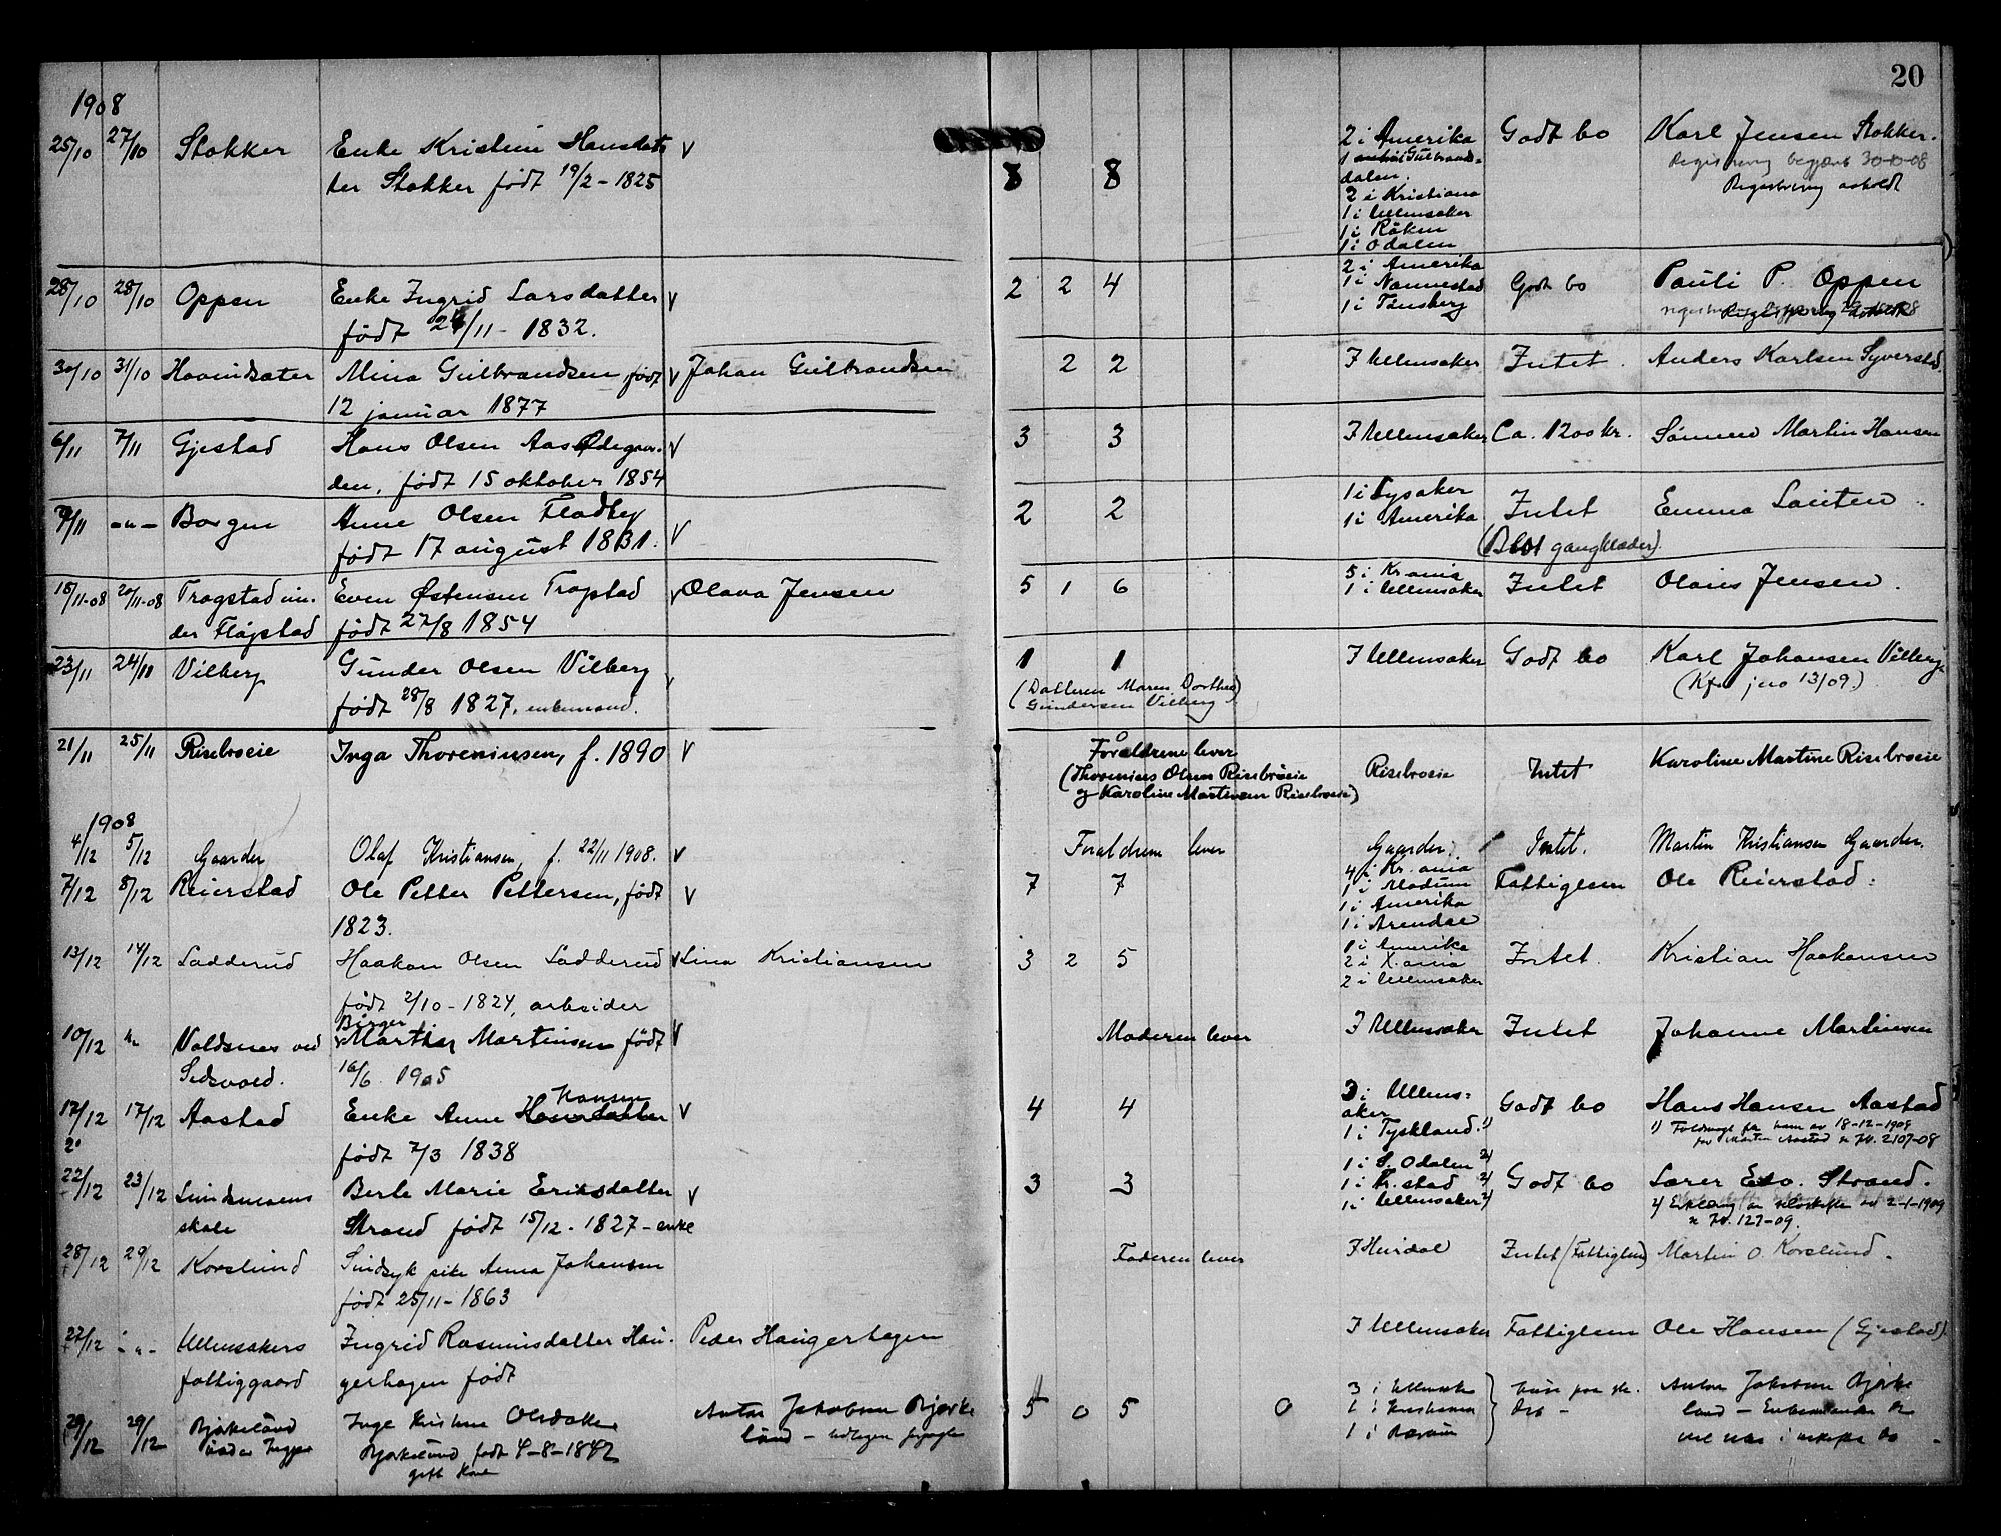 20
1908
25/10 27/10 Stokker Enke Kristine Hansdat- v 8 8 2 i Amerika Godt bo Karl Jensen Stokker.
ter Stokker født 19/2 - 1825 1 Gulbrands- Registrering begjært 30-10-08
dalen. Registrering avholdt
2 i Kristiana
1 i Ullensaker
1 i Røken
1 i Odalen
28/10 28/10 Oppen Enke Ingrid Larsdatter v 2 2 4 2 i Amerika Godt bo Pauli P. Oppen
født 24/11 - 1832. 1 i Nannestad
1 i Tønsberg
30/10 31/10 Hovindsæter Mina Gulbrandsen, født v Johan Gulbrandsen 2 2 I Ullensaker Intet. Anders Karlsen Syverstad
12 januar 1877
6/11 7/11 Gjestad Hans Olsen Aas Ødegaar- v 3 3 I Ullensaker Ca. 1200 kr. Sønnen Martin Hansen
den, født 15 oktober 1854
7/11 -"- Borgen Anne Olsen Fladby v 2 2 1 i Lysaker Intet Emma Lauten
født 17 august 1831. 1 i Amerika (Blot gangklæder).
18/11-08 20/11-08 Trogstad un- Even Østensen Trogstad v Olava Jensen 5 1 6 5 i Kr.ania Intet Olaus Jensen.
der Fløgstad født 27/8 1854 1 i Ullensaker
23/11 24/11 Vilberg Gunder Olsen Vilberg v 1 1 I Ullensaker Godt bo Karl Johansen Vilberg
født 28/8 1827, enkemand. (Datteren Maren Dorthea (Kfr jno 13/09.)
Gundersen Vilberg).
21/11 25/11 Risebroeie Inga Thoreniusen, f. 1890 v Forældrene lever Risebroeie Intet Karoline Martine Risebroeie
(Thorenius Olsen Risebroeie
og Karoline Martinsen Risebroeie)
1908
4/12 5/12 Gaarder Olaf Kristiansen, f. 22/11 1908. v Forældrene lever Gaarder. Intet. Martin Kristiansen Gaarder.
7/12 8/12 Reierstad Ole Petter Pettersen, født v 7 7 4 i Kr.ania Fattiglem Ole Reierstad.
1823. 1 i Modum
1 i Amerika
1 i Arendal
13/12 14/12 Ladderud Haakon Olsen Ladderud v Lina Kristiansen 3 2 5 1 i Amerika Intet. Kristian Haakensen
født 2/10 - 1824, arbeider 2 i X.ania
2 i Ullensaker
10/12 "- Voldsnes ved Birger Martin Martinsen født v Moderen lever I Ullensaker Intet Johanne Martinsen
Sedsvold. 16/6 1905
17/12 17/12 Aastad Enke Anne Hansen v 4 4 3 i Ullens- Godt bo Hans Hansen Aastad
født 2/3 1838 aker 1) Fuldmagt fra ham av 18-12-1908
1 i Tyskland. 1) for Morten Aastad n JN. 2107-08
22/12 23/12 Lundsmoens Berte Marie Eriksdatter v 3 3 1 i S. Odalen 2) Godt bo Lærer Edv. Strand.
skole Strand født 15/12 - 1827 - enke 1 i Kr.stad 2) 2) Erklæring om selvskifte 2-1-1909
1 i Ullensaker 2) n JN. 127-09.
28/12 29/12 Korslund Sindsyk pike Anna Johansen Faderen lever I Hurdal Intet (Fattiglem) Martin O. Korslund.
født 25/11 - 1863
27/12 -"- Ullensakers Ingrid Rasmusdatter Hau- Peder Haugerhagen I Ullensaker Fattiglem Ole Hansen (Gjestad)
fattiggaard gerhagen født
29/12 29/12 Bjørkelund Inge Kristine Olsdatter Anton Jakobsen Bjørke- 5 0 5 0 3 i Ullensaker Anton Jakobsen Bjørke-
under Bjørkelund født 4-8-1842 lund 1 i Kristiania lund -
gift kone 1 i Bærum